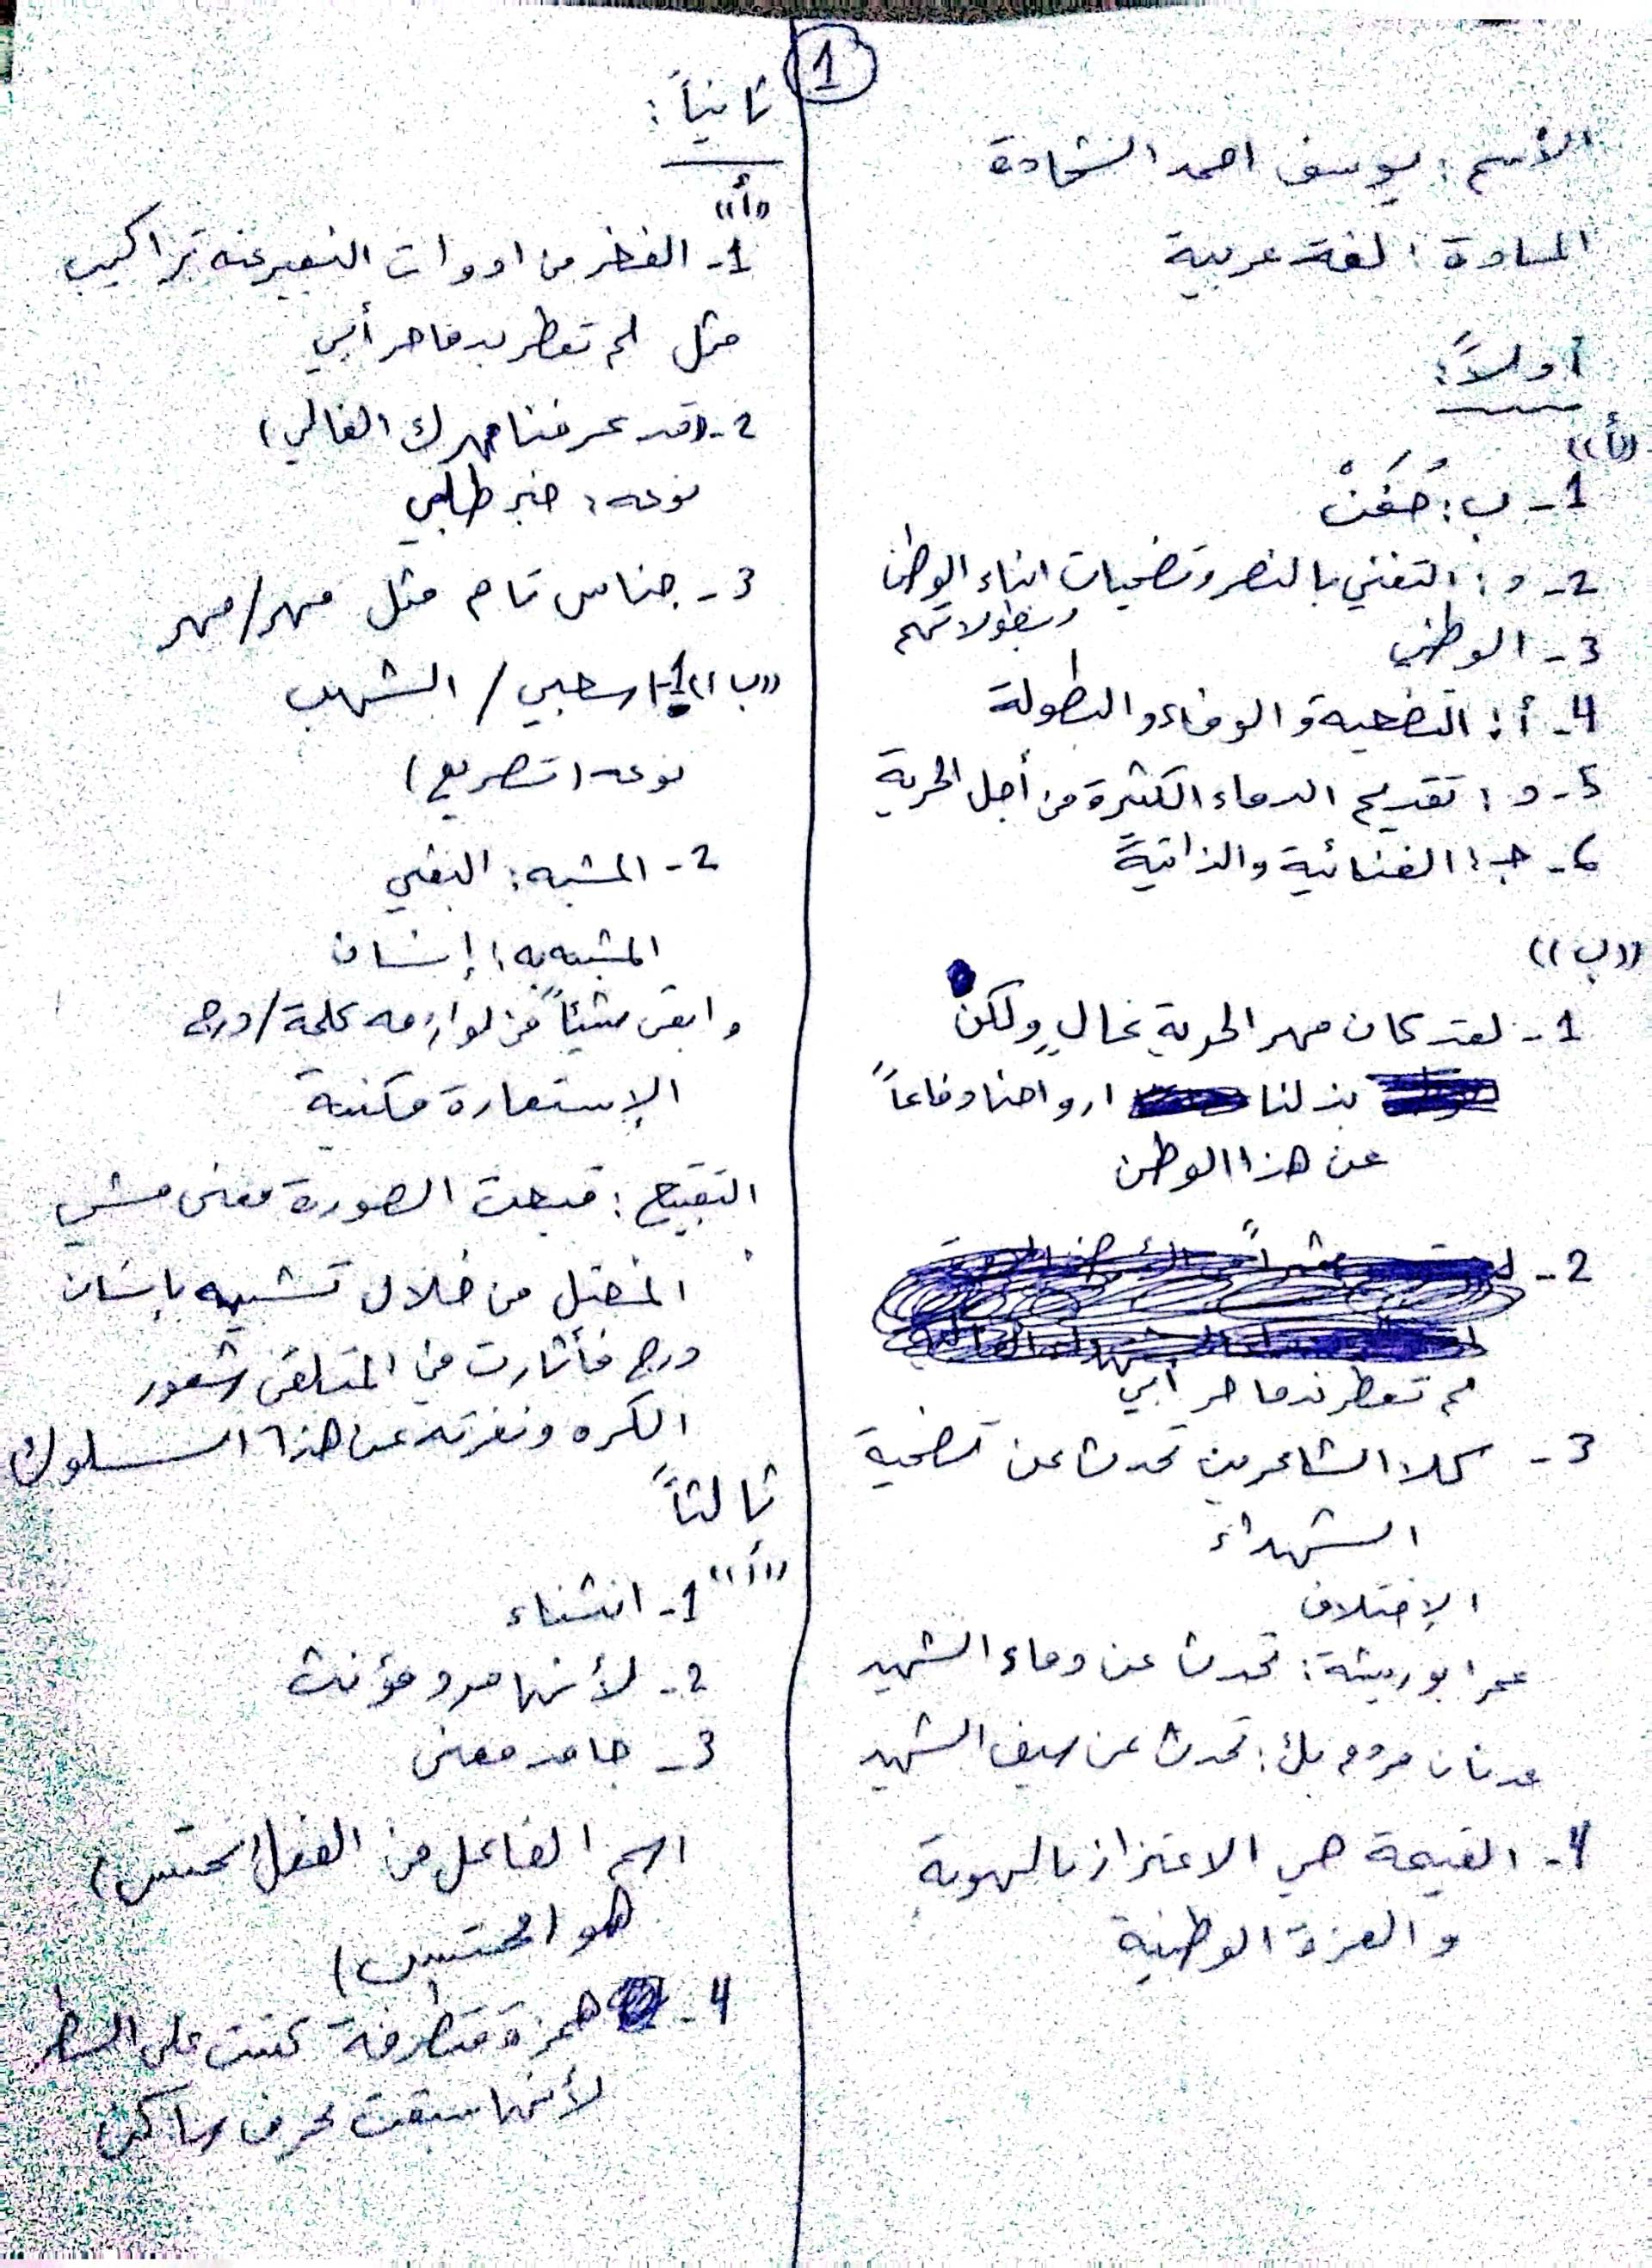 1
الأسم : يوسف احمد الشحادة
المادة : لغة عربية
أولاً :
((أ))
1- ب :
2- د : التغني بالنصر وتضحيات ابناء الوطن
وبطولاتهم
3- الوطني
4- أ : التضحية و الوفاء و البطولة
5- د : تقديم الدماء الكثيرة من أجل الحرية
6- جـ : الغنائية والذاتية
((ب))
1- لقد كان مهر الحرية غالٍ ولكن
بذلنا ارواحنا دفاعاً
عن هذا الوطن
2-
لم تعطر بدما حر أبي
3- كلا الشاعرين تحدث عن تضحية
الشهداء
الإختلاف
عمر ابو ريشة : تحدث عن دماء الشهيد
عدنان مردم بك : تحدث عن سيف الشهيد
4- القيمة هي الاعتزاز بالهوية
و العزة الوطنية
ثانياً :
((أ))
1- الفخر من ادوات التعبير عنه تراكيب
مثل لم تعطر بدما حر أبي
2- (قد عرفنا مهرك الغالي)
نوعه : خبر طلبي
3- جناس تام مثل مهر/مهر
((ب)) 1- اسحبي / الشهب
نوعه (تصريع)
2- المشبه : البغي
المشبه به : إنسان
وابقى شيئاً من لوازمه كلمة/درج
الإستعارة مكنية
التقبيح : قبحت الصورة معنى مشي
المختل من خلال تشبيهه بإنسان
درج فأثارت في المتلقي شعور
الكره ونفرته عن هذا السلوك
ثالثاً
((أ)) 1- انتشاء
2- لأنها مرد مؤنث
3- جامد معنى
اسم الفاعل من الفعل (تحتبس)
هو (محتبس)
4- همزة متطرفة كتبت على السطر
لأنها سبقت بحرف ساكن